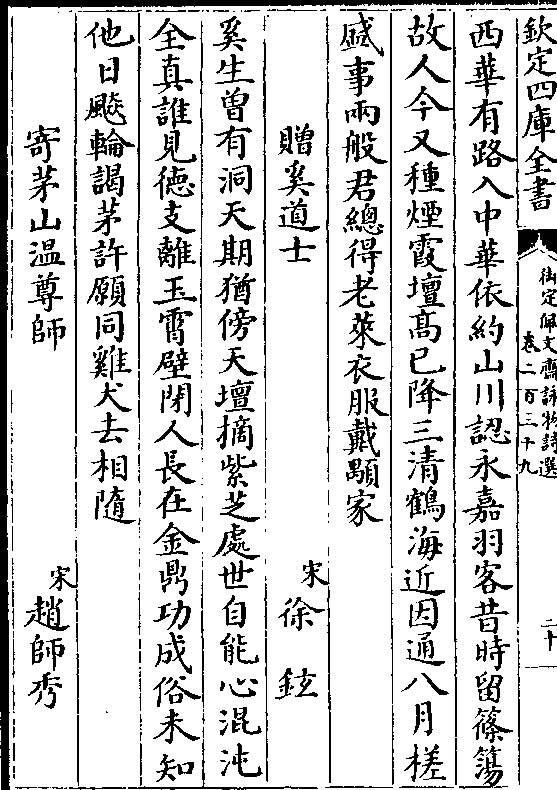 欽定四庫全書
御定佩文齋詠物詩選
卷二百三十九
二十
西華有路入中華依約山川認永嘉羽客昔時留篠簜
故人今又種煙霞壇髙已降三清鶴海近因通八月槎
盛事兩般君總得老萊衣服戴顒家
贈奚道士
宋徐鉉
奚生曽有洞天期猶傍天壇摘紫芝處世自能心混沌
全真誰見徳支離玉霄壁閉人長在金鼎功成俗未知
他日飇輪謁茅許願同雞犬去相隨
寄茅山温尊師
宋趙師秀